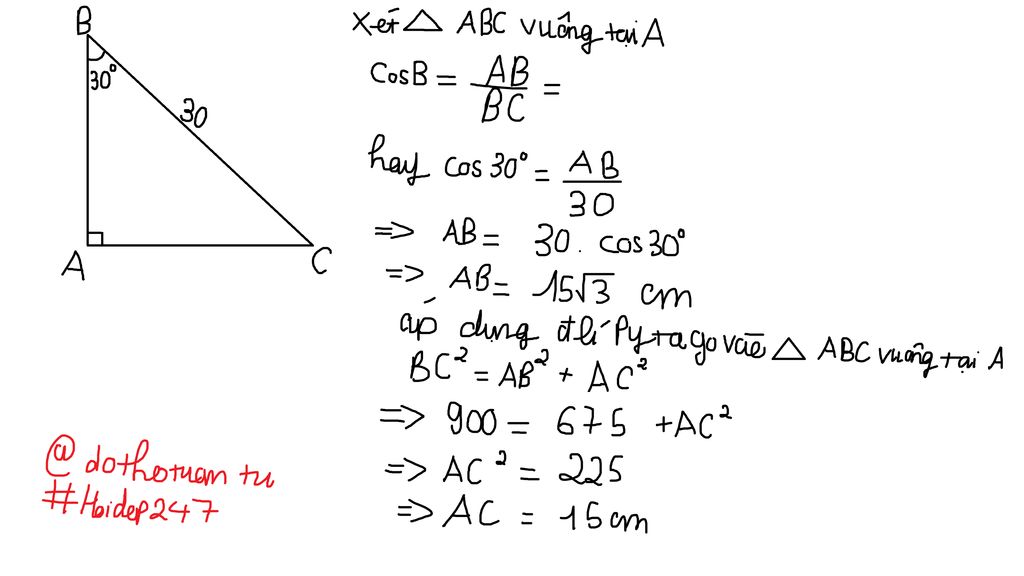 B
30°
30
A
C
Xét △ ABC vuông tại A
CosB = AB/BC =
hay cos 30° = AB/30
=> AB = 30 . cos30°
=> AB = 15√3 cm
áp dụng đ lí Pytago vào △ ABC vuông tại A
BC² = AB² + AC²
=> 900 = 675 + AC²
=> AC² = 225
=> AC = 15cm
@dothotuan tu
#Hoidep247